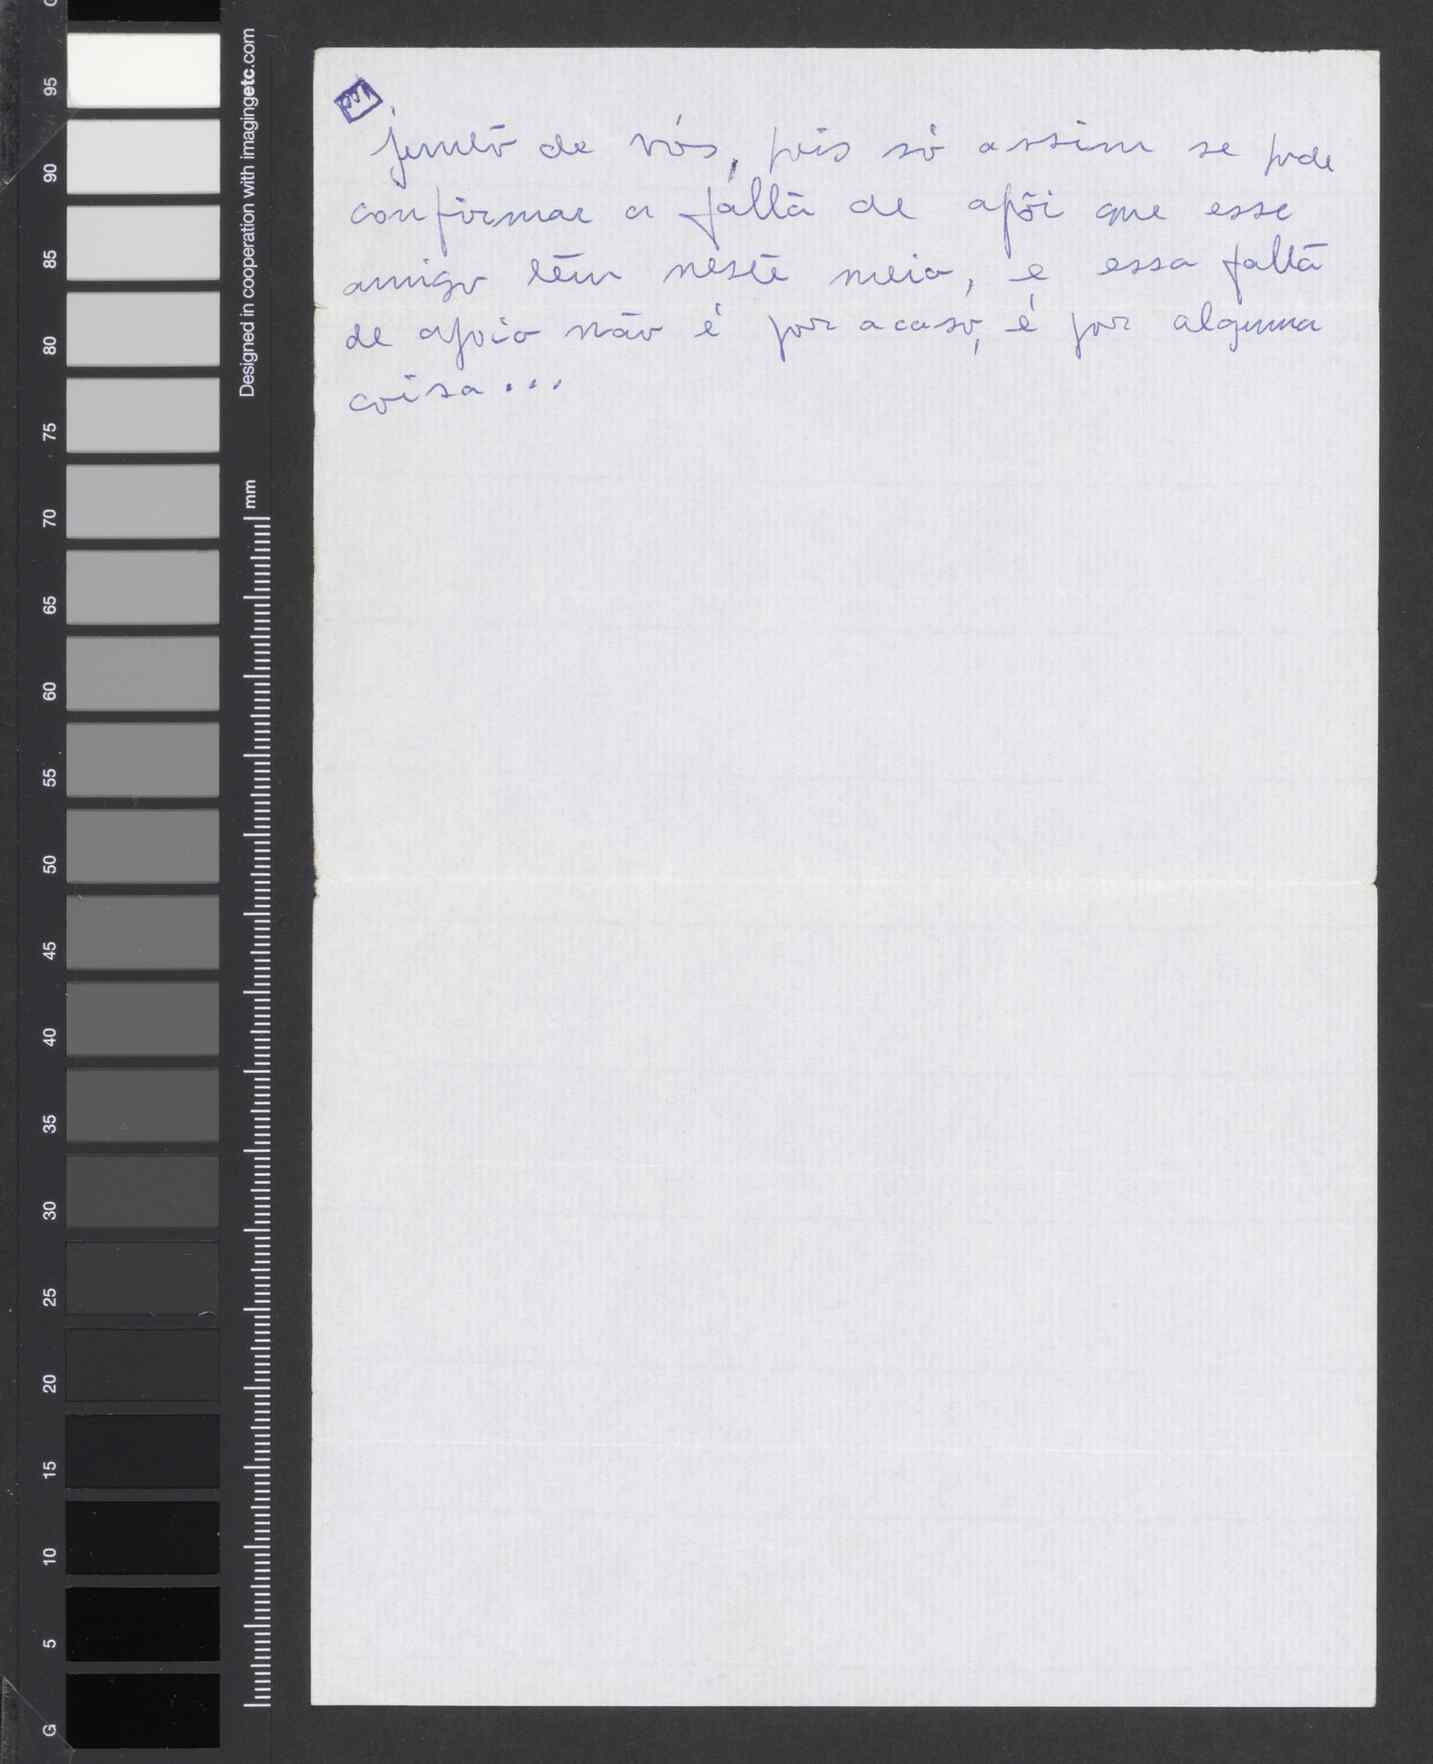 junto de vós, pois só assim se pode
confirmar a falta de apôi que esse
amigo têm neste meio, e essa falta
de apoio não é por acaso, é por alguma
coisa...
Designed in cooperation with imagingetc.com
mm
95
90
85
80
75
70
65
60
55
50
45
40
35
30
25
20
15
10
5
G